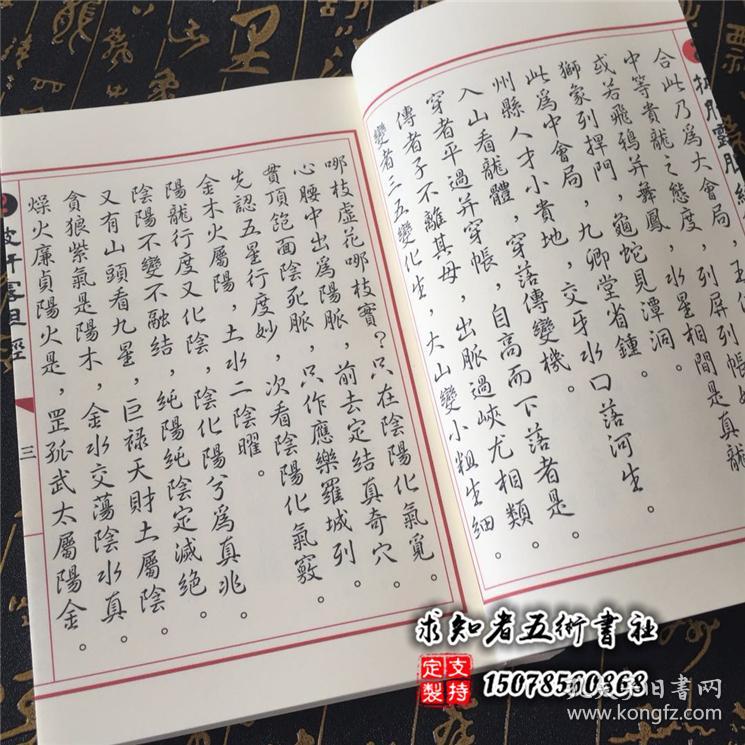 合此乃爲大會局,
列屏列帳
中等貴龍之態度,水星相間是真龍
或若飛鴉并舞鳳,龜蛇見潭洞。
獅象列捍門,九卿堂省鍾。
此爲中會局,交牙水口落河生。
州縣人才小貴地,穿落傳變機。
入山看龍體,自高而下落者是。
穿者平過并穿帳,出脈過峽尤相類。
傳者子不離其母,大山變小粗生細。
變者二五變化生,
哪枝虛花哪枝實?只在陰陽化氣覓。
心腰中出爲陽脈,前去定結真奇穴。
貫頂飽面陰死脈,只作應樂羅城列。
先認五星行度妙,次看陰陽化氣竅。
金木火屬陽,土水二陰曜。
陽龍行度又化陰,陰化陽兮爲真兆。
陰陽不變不融結,純陽純陰定滅絕。
又有山頭看九星,巨禄天財土屬陰。
貪狼紫氣是陽木,金水交蕩陰水真。
燥火廉貞陽火是,罡孤武太屬陽金。
三
求知者五術書社
支持定製
15078510868
旧書网
www.kongfz.com